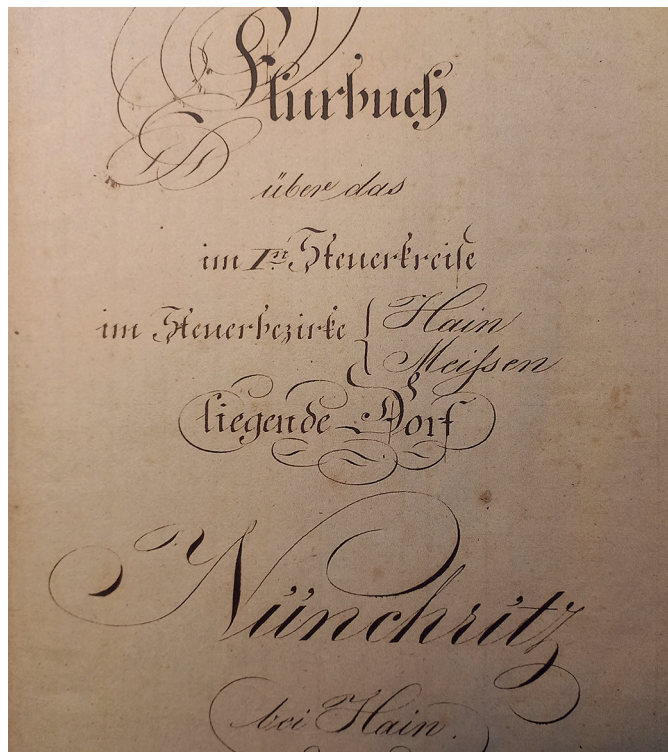 Flurbuch
über das
im I.n Steuerkreise
im Steuerbezirke { Hain
Meissen
liegende Dorf
Nünchritz
bei Hain.